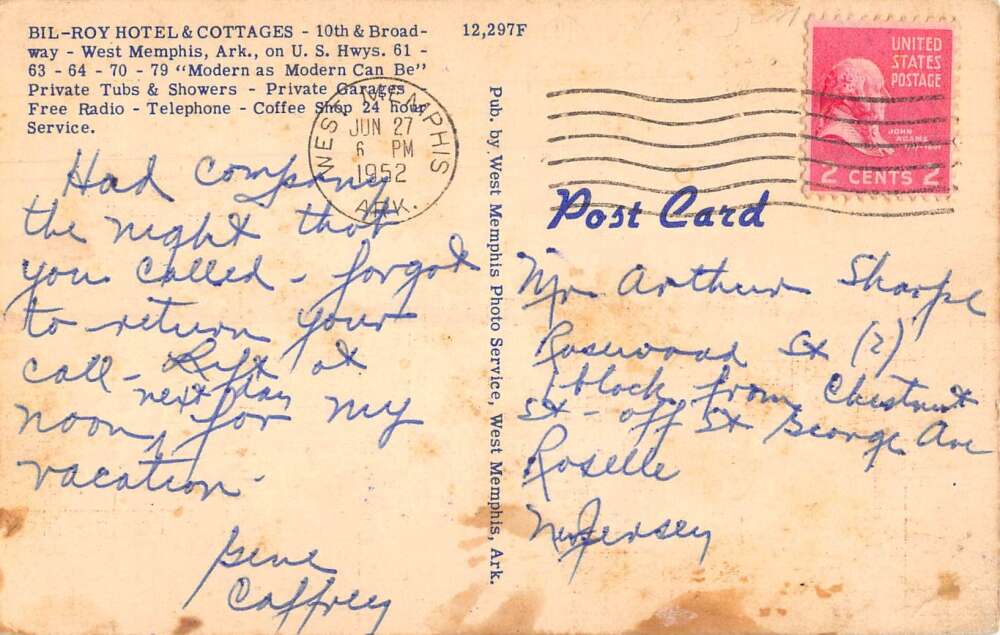 BIL-ROY HOTEL & COTTAGES - 10th & Broad-
way - West Memphis, Ark., on U. S. Hwys. 61 -
63 - 64 - 70 - 79 "Modern as Modern Can Be"
Private Tubs & Showers - Private Garages
Free Radio - Telephone - Coffee Shop 24 hour
Service.
12,297F
UNITED
STATES
POSTAGE
JOHN
ADAMS
2 CENTS 2
WEST MEMPHIS
JUN 27
6 PM
1952
ARK.
Had company
the night that
you called - forgot
to return your
call - Left at
next day
noon, for my
vacation -
Gene
Caffrey
Pub. by West Memphis Photo Service, West Memphis, Ark.
Post Card
Mr. Arthur Sharpe
Rosewood St (?)
1 block from Chestnut
St - off St George Ave
Roselle
New Jersey